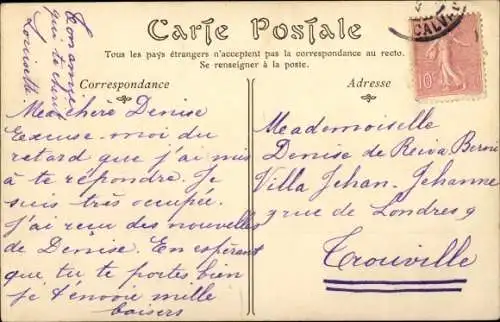 Carte Postale
Tous les pays étrangers n'acceptent pas la correspondance au recto.
Se renseigner à la poste.
Correspondance
Adresse
Ton amie
qui te chérit
Louisette
CALVA
10
Ma chère Denise
Excuse-moi du
retard que j'ai mis
à te répondre. Je
suis très occupée.
J'ai reçu des nouvelles
de Denise. En espérant
que tu te portes bien
je t'envoie mille
baisers
Mademoiselle
Denise de
Villa Jehan-Jehanne
9 rue de Londres 9
Trouville